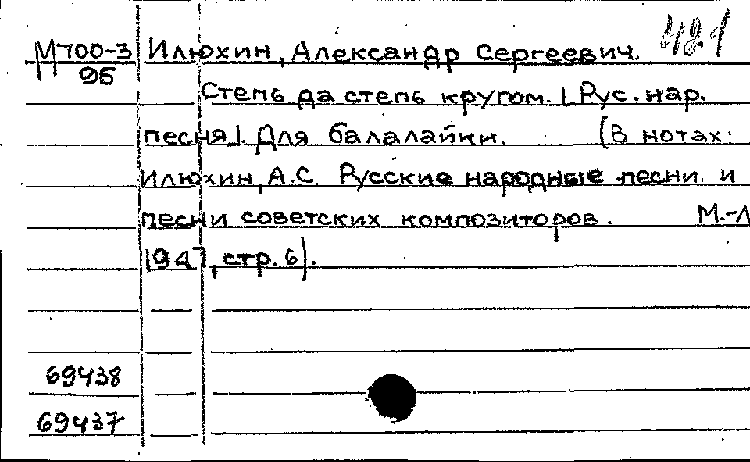 421
М700-3 Илюхин, Александр Сергеевич.
96
Степь да степь кругом. [Рус. нар.
песня]. Для балалайки. (В нотах:
Илюхин, А.С. Русские народные песни и
песни советских композиторов. М.-Л
1947, стр. 6).
69438
69437